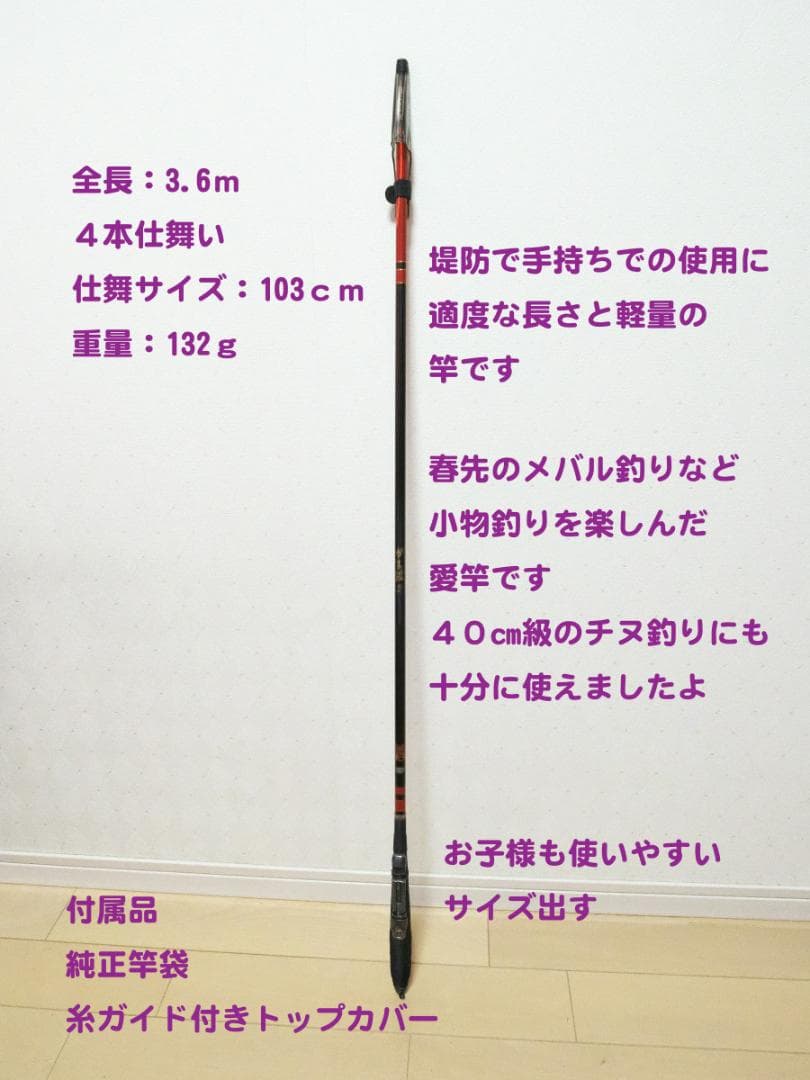 全長：3.6ｍ
４本仕舞い
仕舞サイズ：103ｃｍ
重量：132ｇ
堤防で手持ちでの使用に
適度な長さと軽量の
竿です
春先のメバル釣りなど
小物釣りを楽しんだ
愛竿です
４０㎝級のチヌ釣りにも
十分に使えましたよ
お子様も使いやすい
サイズ出す
付属品
純正竿袋
糸ガイド付きトップカバー